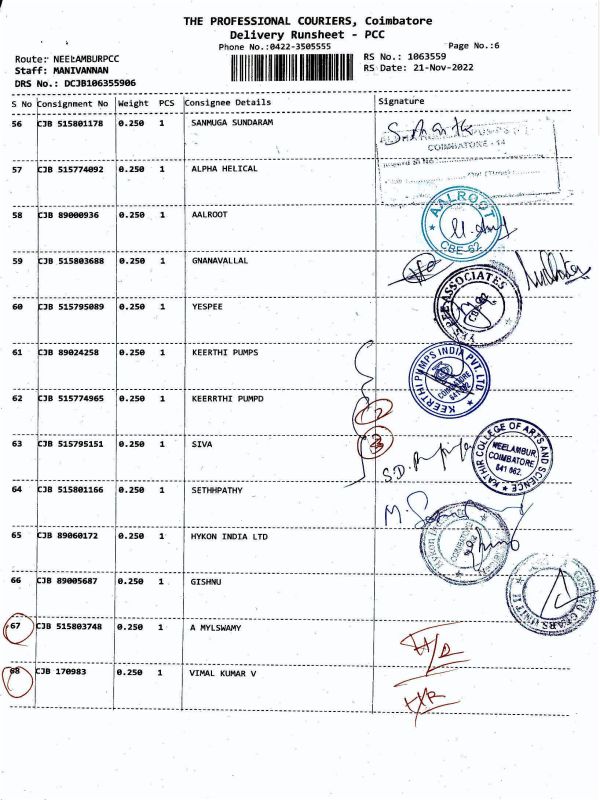 THE PROFESSIONAL COURIERS, Coimbatore
Delivery Runsheet - PCC
Phone No.:0422-3505555
Page No.:6
Route: NEELAMBURPCC
RS No.: 1063559
Staff: MANIVANNAN
RS Date: 21-Nov-2022
DRS No.: DCJB106355906
S No Consignment No Weight PCS Consignee Details Signature
56 CJB 515801178 0.250 1 SANMUGA SUNDARAM
COIMBATORE - 14
57 CJB 515774092 0.250 1 ALPHA HELICAL
58 CJB 89000936 0.250 1 AALROOT
AALROOT
CBE-62
59 CJB 515803688 0.250 1 GNANAVALLAL
YES PEE ASSOCIATES
60 CJB 515795089 0.250 1 YESPEE
61 CJB 89024258 0.250 1 KEERTHI PUMPS
KEERTHI PUMPS INDIA PVT. LTD
COIMBATORE
641 062
62 CJB 515774965 0.250 1 KEERRTHI PUMPD
2
63 CJB 515795151 0.250 1 SIVA
3
KATHIR COLLEGE OF ARTS AND SCIENCE
NEELAMBUR,
COIMBATORE
641 062.
64 CJB 515801166 0.250 1 SETHHPATHY
65 CJB 89060172 0.250 1 HYKON INDIA LTD
66 CJB 89005687 0.250 1 GISHNU
67 CJB 515803748 0.250 1 A MYLSWAMY
68 CJB 170983 0.250 1 VIMAL KUMAR V